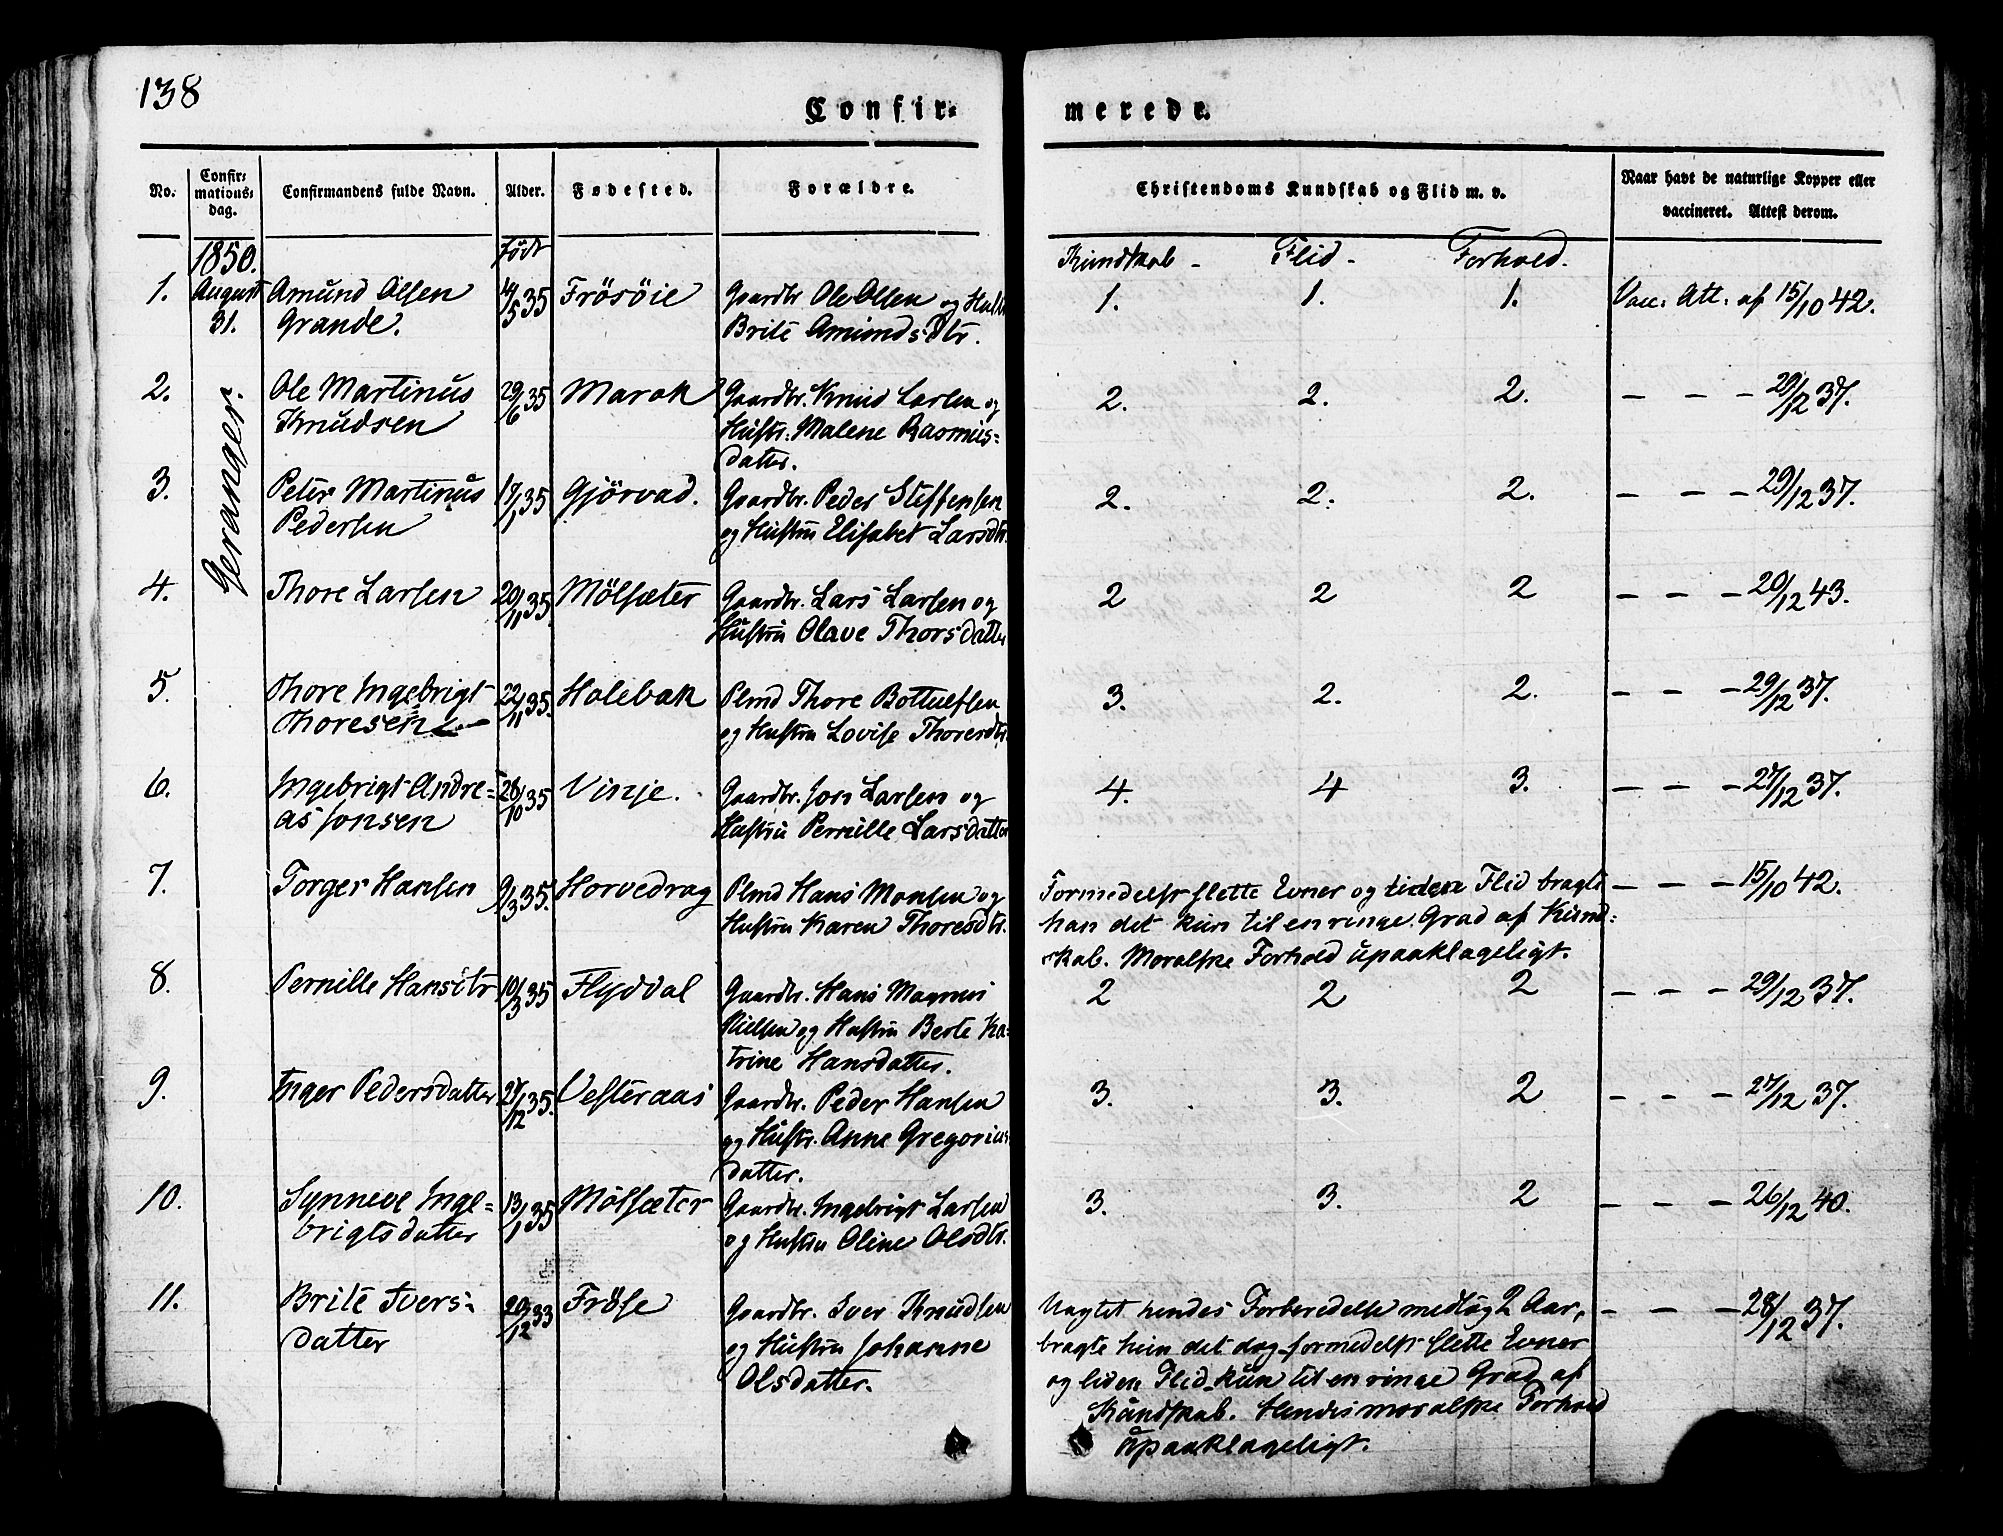 138
Confir=
merede.
No.
Confir=
mations=
dag.
Confirmandens fulde Navn.
Alder.
Fødested.
Forældre.
Christendoms Kundskab og Flid m. v.
Naar havt de naturlige Kopper eller
vaccineret. Attest derom.
1850.
født
Kundskab - Flid - Forhold.
Geranger.
1. August Amund Olsen 14/5 35 Frösöie Gaardbr. Ole Olsen og Hustr 1. 1. 1. Vac. Att. af 15/10 42.
31. Grande. Brite Amunds Dtr.
2. Ole Martinus 29/6 35 Marak Gaardbr. Knud Larsen og 2. 2. 2. - - - 29/12 37.
Knudsen Hustr. Malene Rasmus=
datter.
3. Peter Martinus 17/1 35 Gjörvad. Gaardbr. Peder Steffensen 2. 2. 2. - - - 29/12 37.
Pedersen og Hustru Elisabet Larsdtr.
4. Thore Larsen 20/11 35 Mölsæter Gaardbr. Lars Larsen og 2 2 2 - - - 20/12 43.
Hustru Olave Thorsdatter
5. Thore Ingebrigt 22/11 35. Holebak Plmd Thore Bottulfsen 3. 2. 2. - - - 29/12 37.
Thoresen og Hustru Lovise Thoresdtr.
6. Ingebrigt Andre= 28/10 35 Vinje. Gaardbr. Jon Larsen og 4. 4 3. - - - 27/12 37.
as Jonsen Hustru Pernille Larsdatter
7. Torger Hansen 9/3 35. Horvedrag Plmd Hans Monsen og Formedelst slette Evner og liden Flid bragte - - - 15/10 42.
Hustru Karen Thoresdtr. han det kun til en ringe Grad af Kund=
skab. Moralske Forhold upaaklageligt.
8. Pernille Hansdtr 10/3 35 Flydal Gaardbr. Hans Magnus 2 2 2 - - - 29/12 37.
Nielsen og Hustru Berte Ka=
trine Hansdatter.
9. Inger Pedersdatter 27/12 35. Vesteraas Gaardbr. Peder Hansen 3. 3. 2 - - - 27/12 37.
og Hustr. Anne Gregorius=
datter.
10. Synneve Inge= 13/1 35 Mölsæter Gaardbr. Ingebrigt Larsen 3. 3. 2 - - - 26/12 40.
brigtsdatter og Hustru Oline Olsdtr.
11. Brite Ivers= 20/12 33 Fröse Gaardbr. Iver Knudsen Uagtet hendes Forberedelse medtog 2 Aar, - - - 28/12 37.
datter og Hustru Johanne bragte hun det dog formedelst slette Evner
Olsdatter. og liden Flid kun til en ringe Grad af
Kundskab. Hendes moralske Forhold
upaaklageligt.